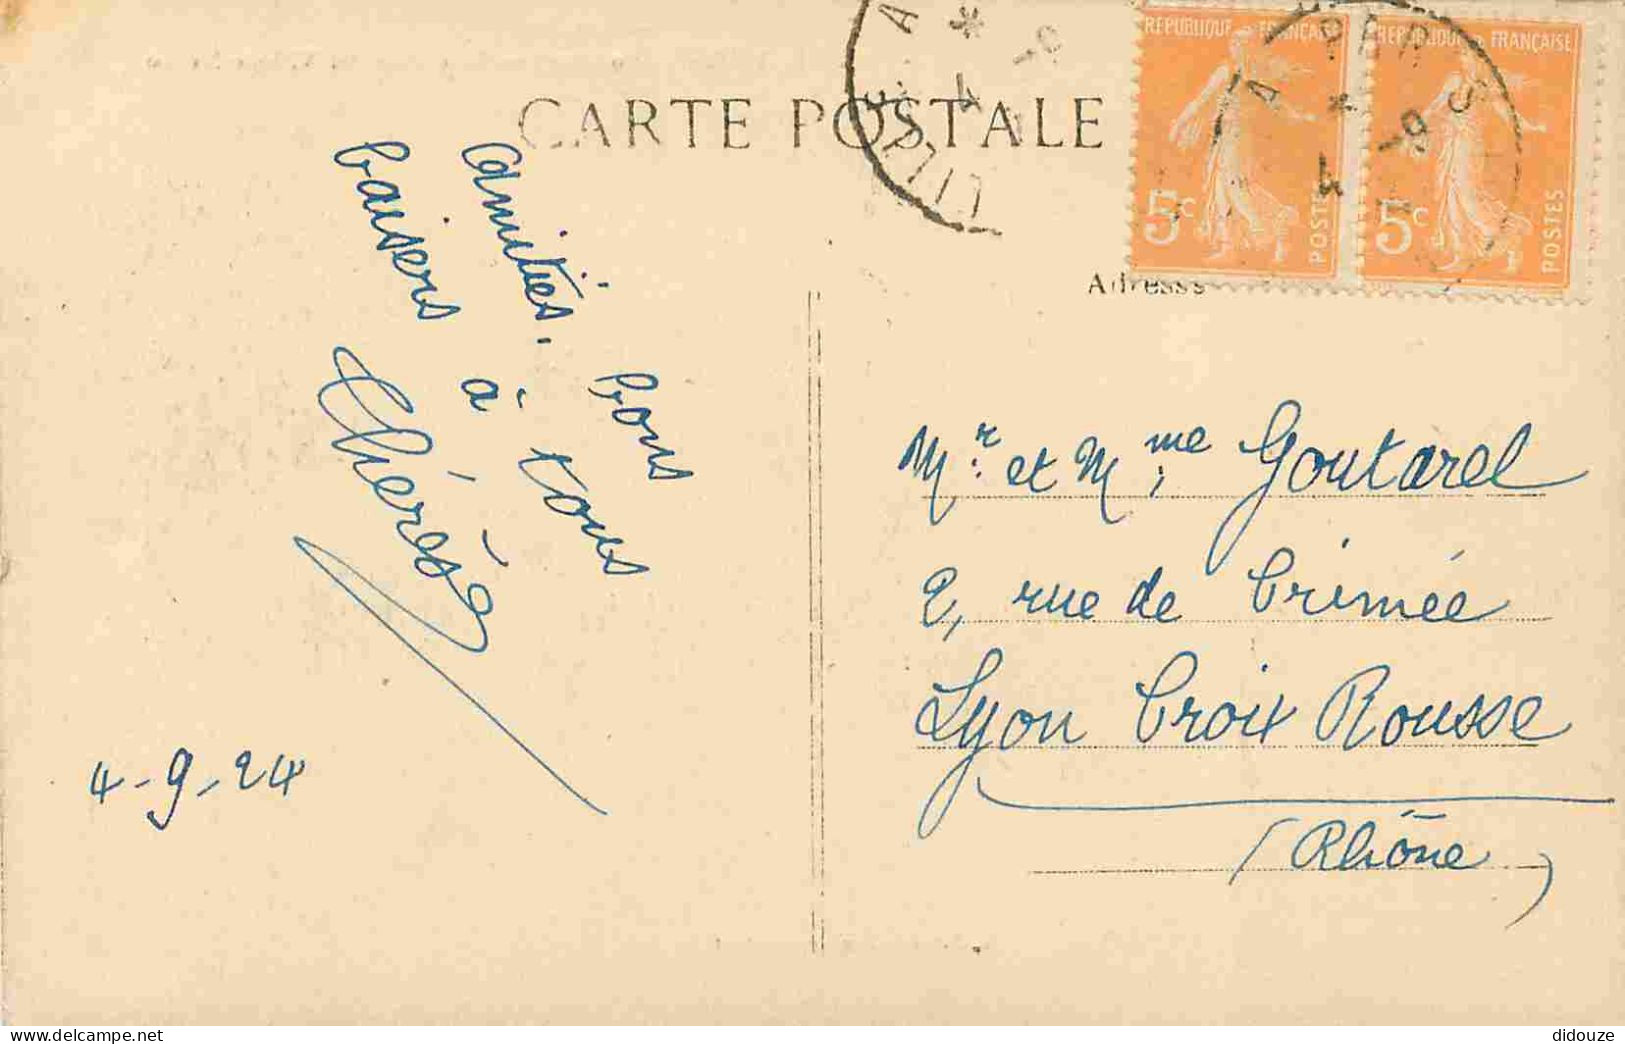 CARTE POSTALE
REPUBLIQUE FRANÇAISE
5c
POSTES
REPUBLIQUE FRANÇAISE
5c
POSTES
LILLE A
A PARIS
Adresse
amitiés. bons
baisers à tous
Thérèse
4-9-24
Mr. et Mme Goutarel
2, rue de Crimée
Lyon Croix Rousse
(Rhône)
didouze